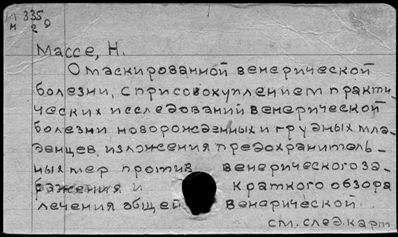 М 335
н 29
Массе, Н.
О маскированной венерической
болезни, с присовокуплением практи-
ческих исследований венерической
болезни новорожденных и грудных мла-
денцев, изложения предохранитель-
ных мер против венерического за-
ражения и краткого обзора
лечения общей венерической.
см. след. карт